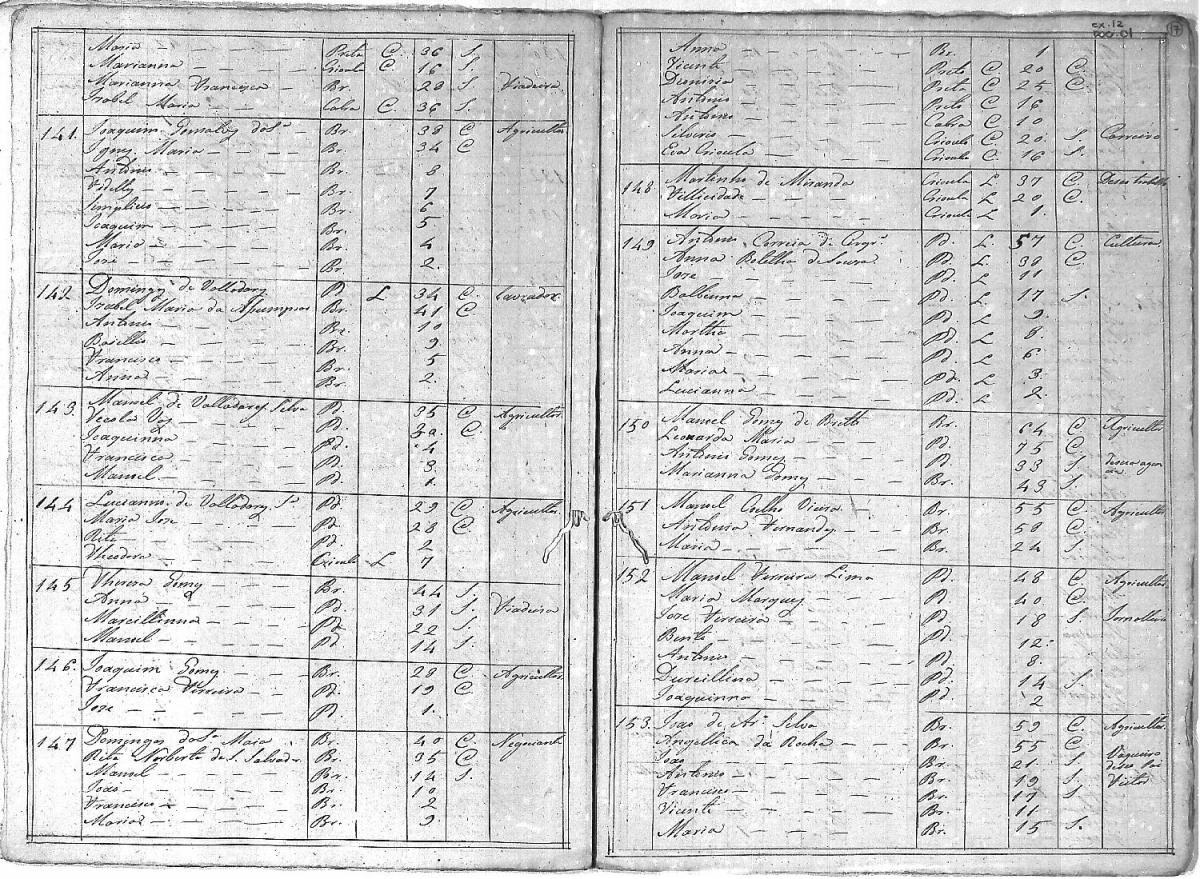 Maria Preta C. 36 S.
Marianna Crioula C 16 S.
Marianna Francisca Br. 28 S. Fiadeira
Izabel Maria Cabra C. 36 S.
141. Joaquim dos Sº Br. 38 C Agricultor
Ignez Maria Br. 34 C
Antonio Br. 8
Br. 7
Simplicio Br. 6
Joaquim Br. 5
Maria Br. 4
José Br. 2.
142. Domingos de Valladary Pd L 34 C. Lavrador
Izabel Maria da Assumpsao Br. 41 C
Antonio Br. 10
Basilio Br. 9
Francisco Br. 5
Anna Br. 2.
143. Manuel de Valladares Silva Pd. 35 C Agricultor
Vaz Pd. C.
Joaquinna Pd. 4
Francisco Pd. 3
Manuel Pd. 1.
144 Lucianno de Valladary Sª Pd 29 C Agricultor
Maria José Pd. 28 C.
Rita Pd. 2
Theodora Crioula L 7
145. Thereza Gomes Br. 44 S. Fiadeira
Anna Pd. 31 S.
Marcellinna Pd. 22 S.
Manuel Pd. 14 S.
146. Joaquim Gomes Br. 29 C Agricultor
Francisca Ferreira Pd. 19 C
José Pd. 1.
147 Domingos dos Sº Maia Br. 40 C. Negociante
Rita Norberta de S. Salvador Br. 35 C
Manuel Br. 14 S.
João Br. 10
Francisco Br. 2
Maria Br. 9
cx. 12
17
Anna Br. 1
Vicente Preto C 20 C.
Preta C 25 C.
Antonio Preto C 16
Antonio Cabra C 10
Silverio Crioulo C. 20. S. Carreiro
Eva Crioula Crioula C. 16 S.
148. Martinho de Miranda Crioulo L 37 C.
Fellicidade Crioula L 20 C.
Maria Crioula L 1.
149 Antonio Correia de Pd. L 57 C. Cultura
Anna Botelha de Souza Pd. L 39 C.
José Pd. L 11
Balbinna Pd. L 17 S.
Joaquim Pd. L 9.
Martha Pd. L 8.
Anna Pd. L 6
Maria Pd. L 3
Lucianna Pd. L 2.
150 Manuel Gomes de Britto Br. 64 C. Agricultor
Leonarda Maria Pd. 75 C.
Antonio Gomes Pd. 33 S.
Marianna Gomes Br. 43 S.
151 Manuel Coelho Vieira Br. 55 C. Agricultor
Antonia Fernandes Br. 59 C.
Maria Br. 24 S.
152 Manuel Ferreira Lima Pd. 48 C. Agricultor
Maria Marques Pd. 40 C.
José Ferreira Pd. 18 S. Jornalleiro
Bento Pd. 12
Antonio Pd. 8.
Pd. 14 S.
Joaquinna Pd. 2
153. João de Arº Silva Br. 59 C. Agricultor
Angellica da Rocha Br. 55 C.
João Br. 21 S. Vaqueiro
Antonio Br. 19 S.
Francisco Br. 17 S
Vicente Br. 11
Maria Br. 15 S.